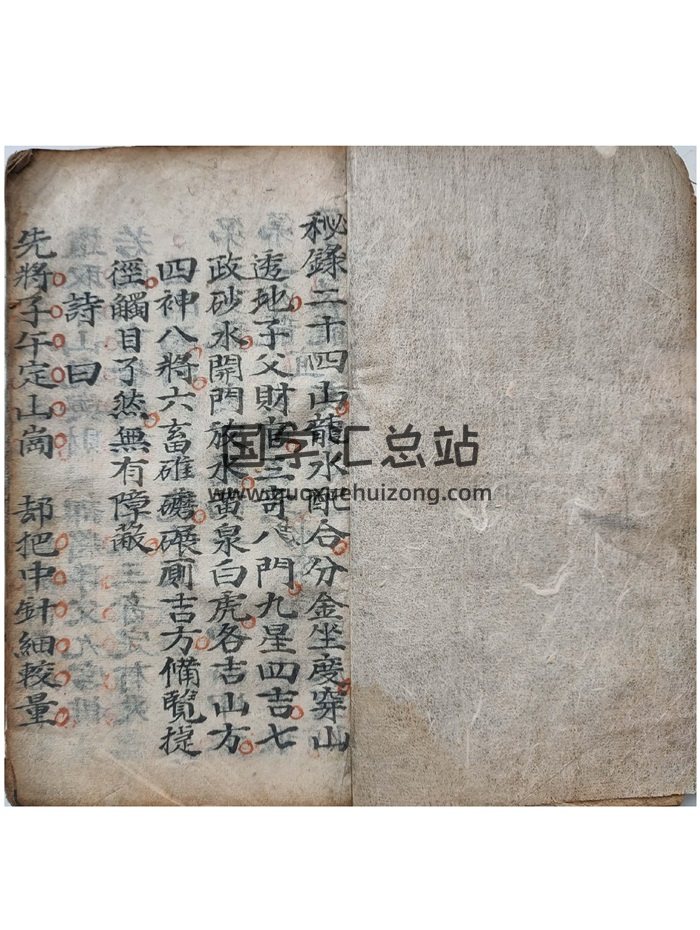 秘錄二十四山龍水配合分金坐度穿山
透地子父財官三奇八門九星四吉七
政砂水開門放水黄泉白虎各吉山方
四神八將六畜碓磨碾厠吉方備覽捷
徑觸目了然無有障蔽
詩曰
先將子午定山崗 却把中針細較量
国学汇总站
www.guoxuehuizong.com